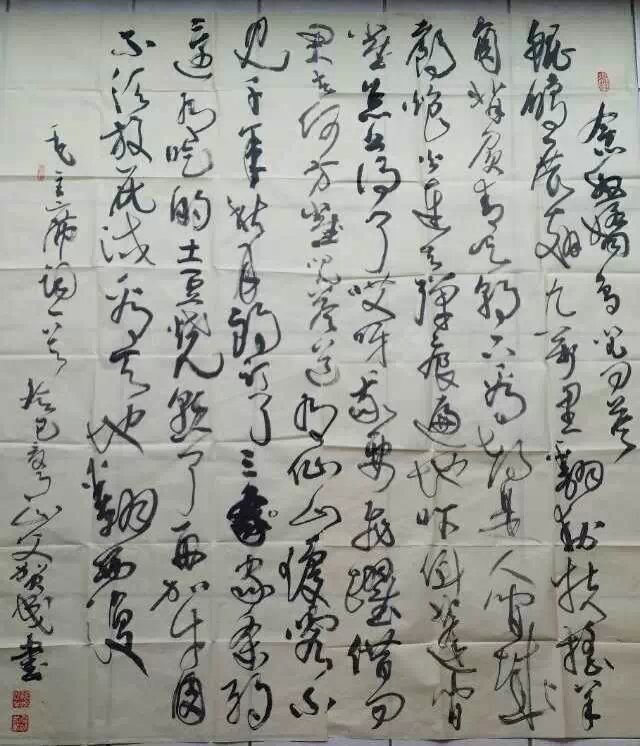 念奴嬌鸟儿问答
鲲鹏展翅九万里翻动扶摇羊
角背负青天朝下看都是人间城
郭炮火连天弹痕遍地吓倒蓬间
雀怎么得了哎呀我要飞跃借问
君去何方雀儿答道有仙山琼阁不
见年秋月朗订了三家条约
还有吃的土豆烧熟了再加牛肉
不须放屁试看天地翻覆
毛主席词一首
癸巳 山人贺成書